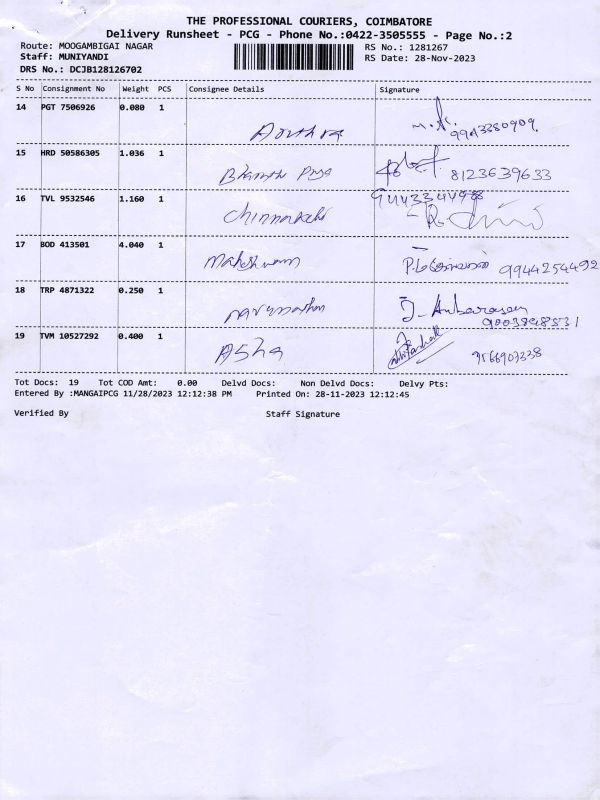 THE PROFESSIONAL COURIERS, COIMBATORE
Delivery Runsheet - PCG - Phone No.:0422-3505555 - Page No.:2
Route: MOOGAMBIGAI NAGAR RS No.: 1281267
Staff: MUNIYANDI RS Date: 28-Nov-2023
DRS No.: DCJB128126702
S No Consignment No Weight PCS Consignee Details Signature
14 PGT 7506926 0.080 1
9943380909
15 HRD 50586305 1.036 1
Bharath Priya 8123639633
16 TVL 9532546 1.160 1
Chinnarachi
17 BOD 413501 4.040 1
Maheshwari 9944254492
18 TRP 4871322 0.250 1
J. Anbarasan
9003898531
19 TVM 10527292 0.400 1
Asha 9566903338
Tot Docs: 19 Tot COD Amt: 0.00 Delvd Docs: Non Delvd Docs: Delvy Pts:
Entered By :MANGAIPCG 11/28/2023 12:12:38 PM Printed On: 28-11-2023 12:12:45
Verified By Staff Signature